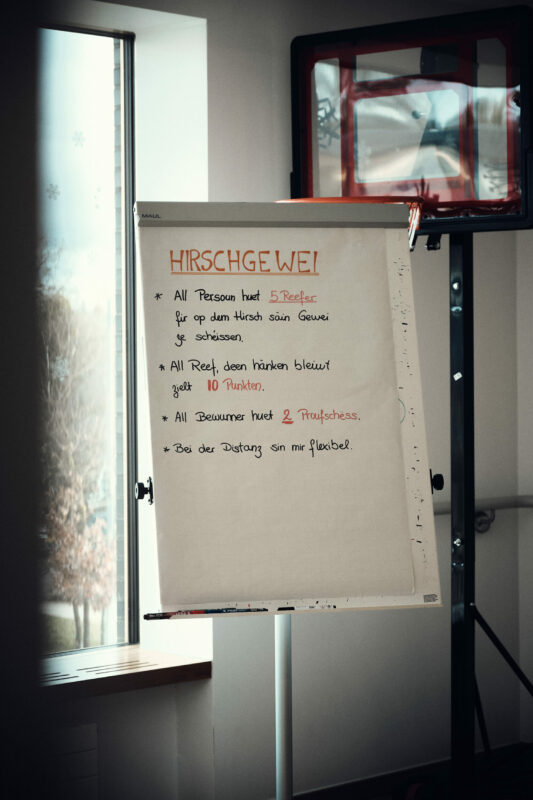 MAUL
HIRSCHGEWEI
* All Persoun huet 5 Reefer
fir op dem Hirsch säin Gewei
ze schéissen.
* All Reef, deen hänken bleiwt
zielt 10 Punkten.
* All Bewunner huet 2 Proufschëss.
* Bei der Distanz sin mir flexibel.